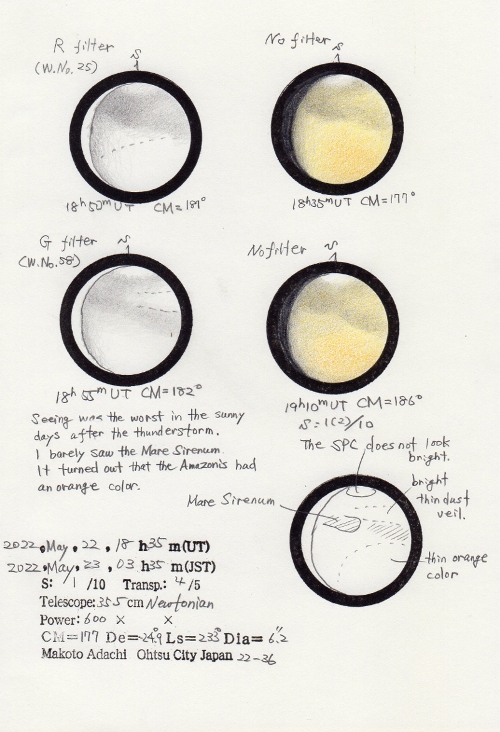 R filter
(W.No.25)
S
18h50mUT CM=181°
No filter
S
18h35mUT CM=177°
G filter
(W.No.58)
S
18h55mUT CM=182°
No filter
S
19h10mUT CM=186°
S=1(2)/10
Seeing was the worst in the sunny
days after the thunderstorm.
I barely saw the Mare Sirenum.
It turned out that the Amazonis had
an orange color.
The SPC does not look
bright.
bright
thin dust
veil.
Mare Sirenum
thin orange
color
2022, May, 22, 18 h35 m(UT)
2022, May, 23, 03 h35 m(JST)
S: 1 /10 Transp.: 4 /5
Telescope: 355 cm Newtonian
Power: 600 × ×
CM=177 De=-24.9 Ls=233° Dia= 6."2
Makoto Adachi Ohtsu City Japan 22-36